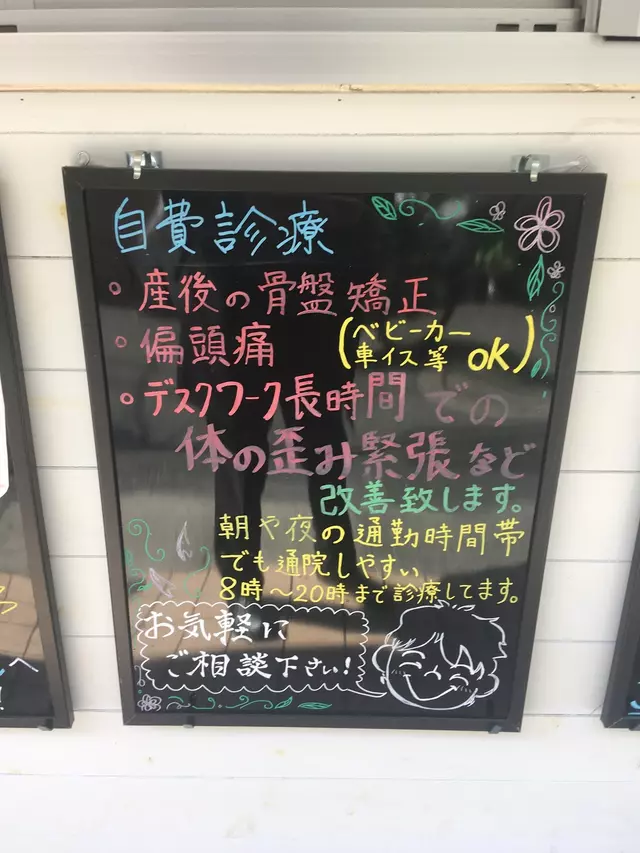 自費診療
・産後の骨盤矯正
・偏頭痛 (ベビーカー 車イス等 ok)
・デスクワーク長時間での
体の歪み緊張など
改善致します。
朝や夜の通勤時間帯
でも通院しやすい
8時〜20時まで診療してます。
お気軽に
ご相談下さい!
へ
!